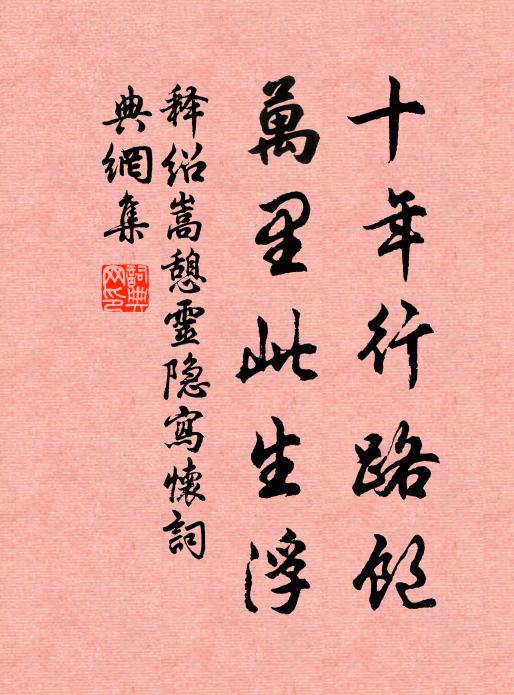 十年行路飽
萬里此生浮
释紹嵩憩靈隐寫懷詞
典網集
詞典
网印